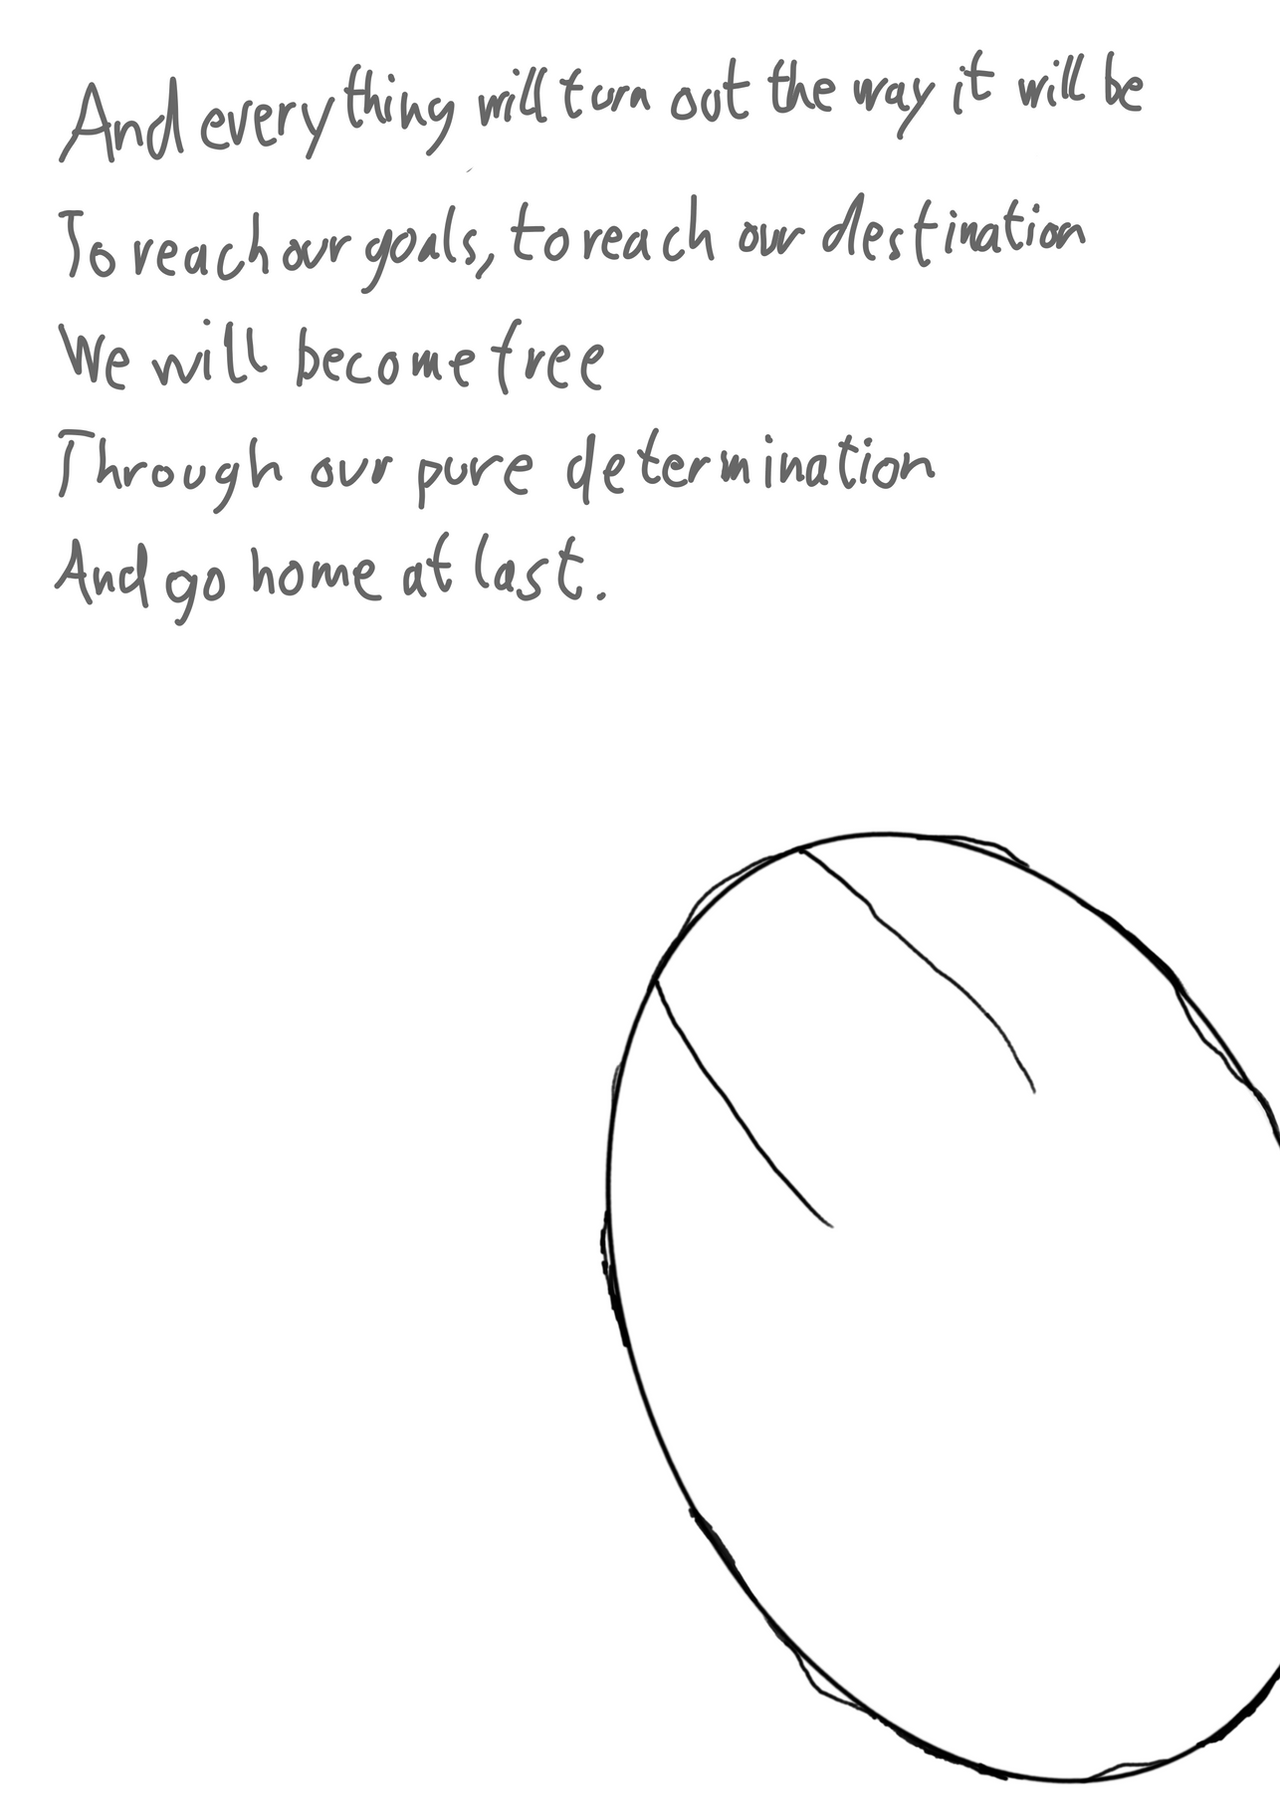 And everything will turn out the way it will be
To reach our goals, to reach our destination
We will become free
Through our pure determination
And go home at last.